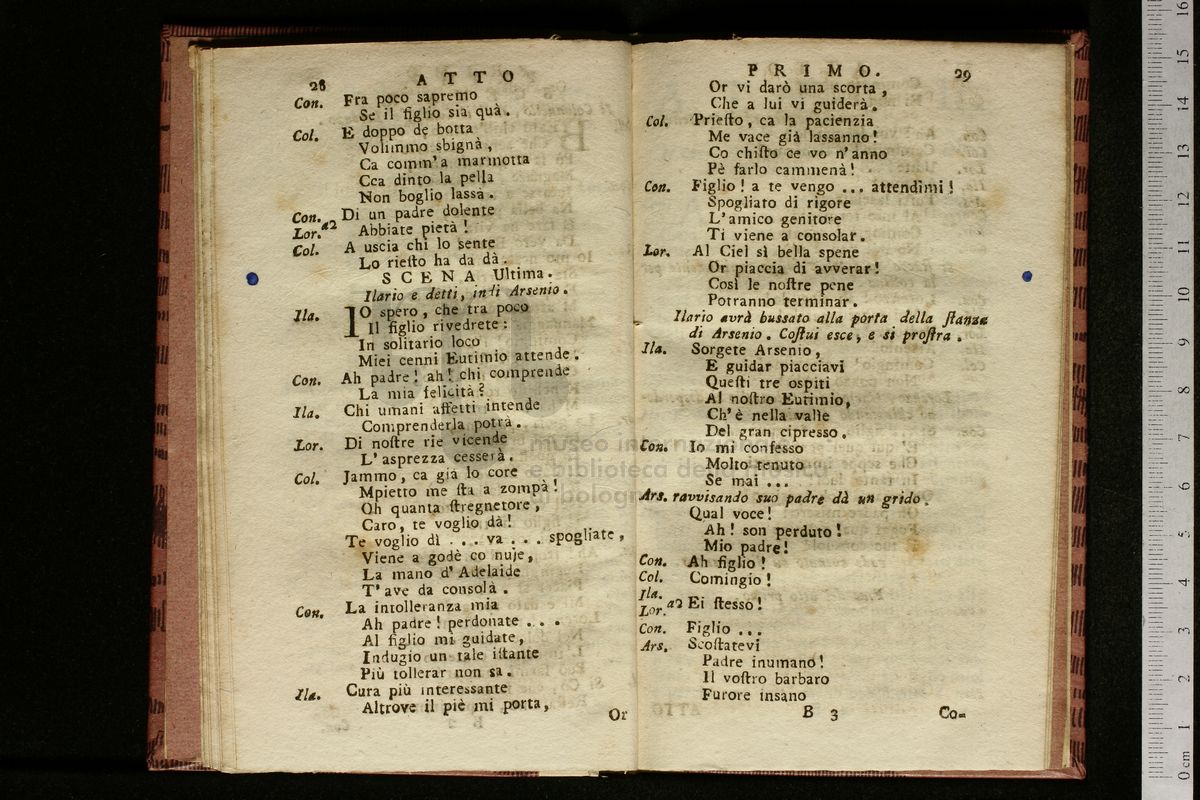 28 ATTO
Con. Fra poco sapremo
Se il figlio sia quà.
Col. E doppo de botta
Volimmo sbignà,
Ca comm'a marmotta
Cca dinto la pella
Non boglio lassà.
Con. Di un padre dolente
Lor. a2 Abbiate pietà!
Col. A uscia chi lo sente
Lo riesto ha da dà.
SCENA Ultima.
Ilario e detti, indi Arsenio.
Ila. IO spero, che tra poco
Il figlio rivedrete:
In solitario loco
Miei cenni Eutimio attende.
Con. Ah padre! ah! chi comprende
La mia felicità?
Ila. Chi umani affetti intende
Comprenderla potrà.
Lor. Di nostre rie vicende
L'asprezza cesserà.
Col. Jammo, ca già lo core
Mpietto me sta a zompà!
Oh quanta stregnetore,
Caro, te voglio dà!
Te voglio dì ... va ... spogliate,
Viene a godè co nuje,
La mano d'Adelaide
T'ave da consolà.
Con. La intolleranza mia
Ah padre! perdonate ...
Al figlio mi guidate,
Indugio un tale istante
Più tollerar non sa.
Ila. Cura più interessante
Altrove il piè mi porta,
Or
PRIMO. 29
Or vi darò una scorta,
Che a lui vi guiderà.
Col. Priesto, ca la pacienzia
Me vace già lassanno!
Co chisto ce vo n'anno
Pè farlo cammenà!
Con. Figlio! a te vengo ... attendimi!
Spogliato di rigore
L'amico genitore
Ti viene a consolar.
Lor. Al Ciel sì bella spene
Or piaccia di avverar!
Così le nostre pene
Potranno terminar.
Ilario avrà bussato alla porta della stanza
di Arsenio. Costui esce, e si prostra.
Ila. Sorgete Arsenio,
E guidar piacciavi
Questi tre ospiti
Al nostro Eutimio,
Ch'è nella valle
Del gran cipresso.
Con. Io mi confesso
Molto tenuto
Se mai ...
Ars. ravvisando suo padre dà un grido.
Qual voce!
Ah! son perduto!
Mio padre!
Con. Ah figlio!
Col. Comingio!
Ila.
Lor. a2 Ei stesso!
Con. Figlio ...
Ars. Scostatevi
Padre inumano!
Il vostro barbaro
Furore insano
B 3 Co-
museo internazionale
e biblioteca della musica
di bologna